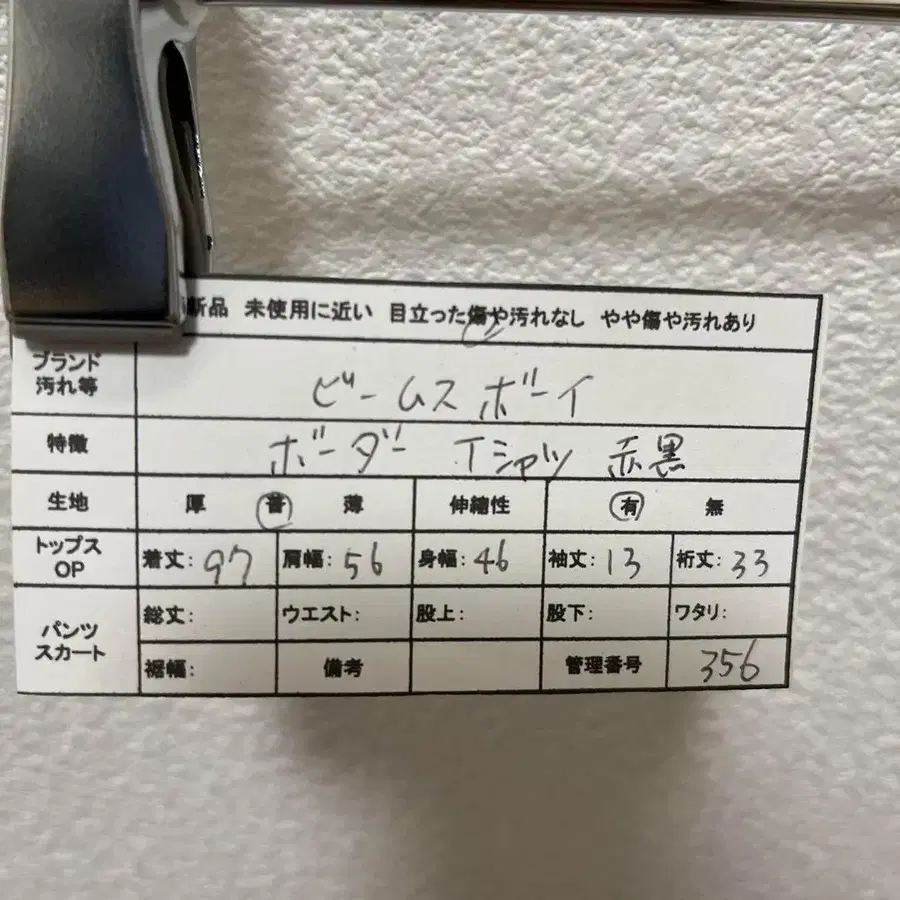 新品 未使用に近い 目立った傷や汚れなし やや傷や汚れあり
ブランド
汚れ等
ビームス ボーイ
特徴 ボーダー Tシャツ 赤黒
生地 厚 普 薄 伸縮性 有 無
トップス
OP
着丈: 97 肩幅: 56 身幅: 46 袖丈: 13 裄丈: 33
パンツ
スカート
総丈: ウエスト: 股上: 股下: ワタリ:
裾幅: 備考 管理番号 356